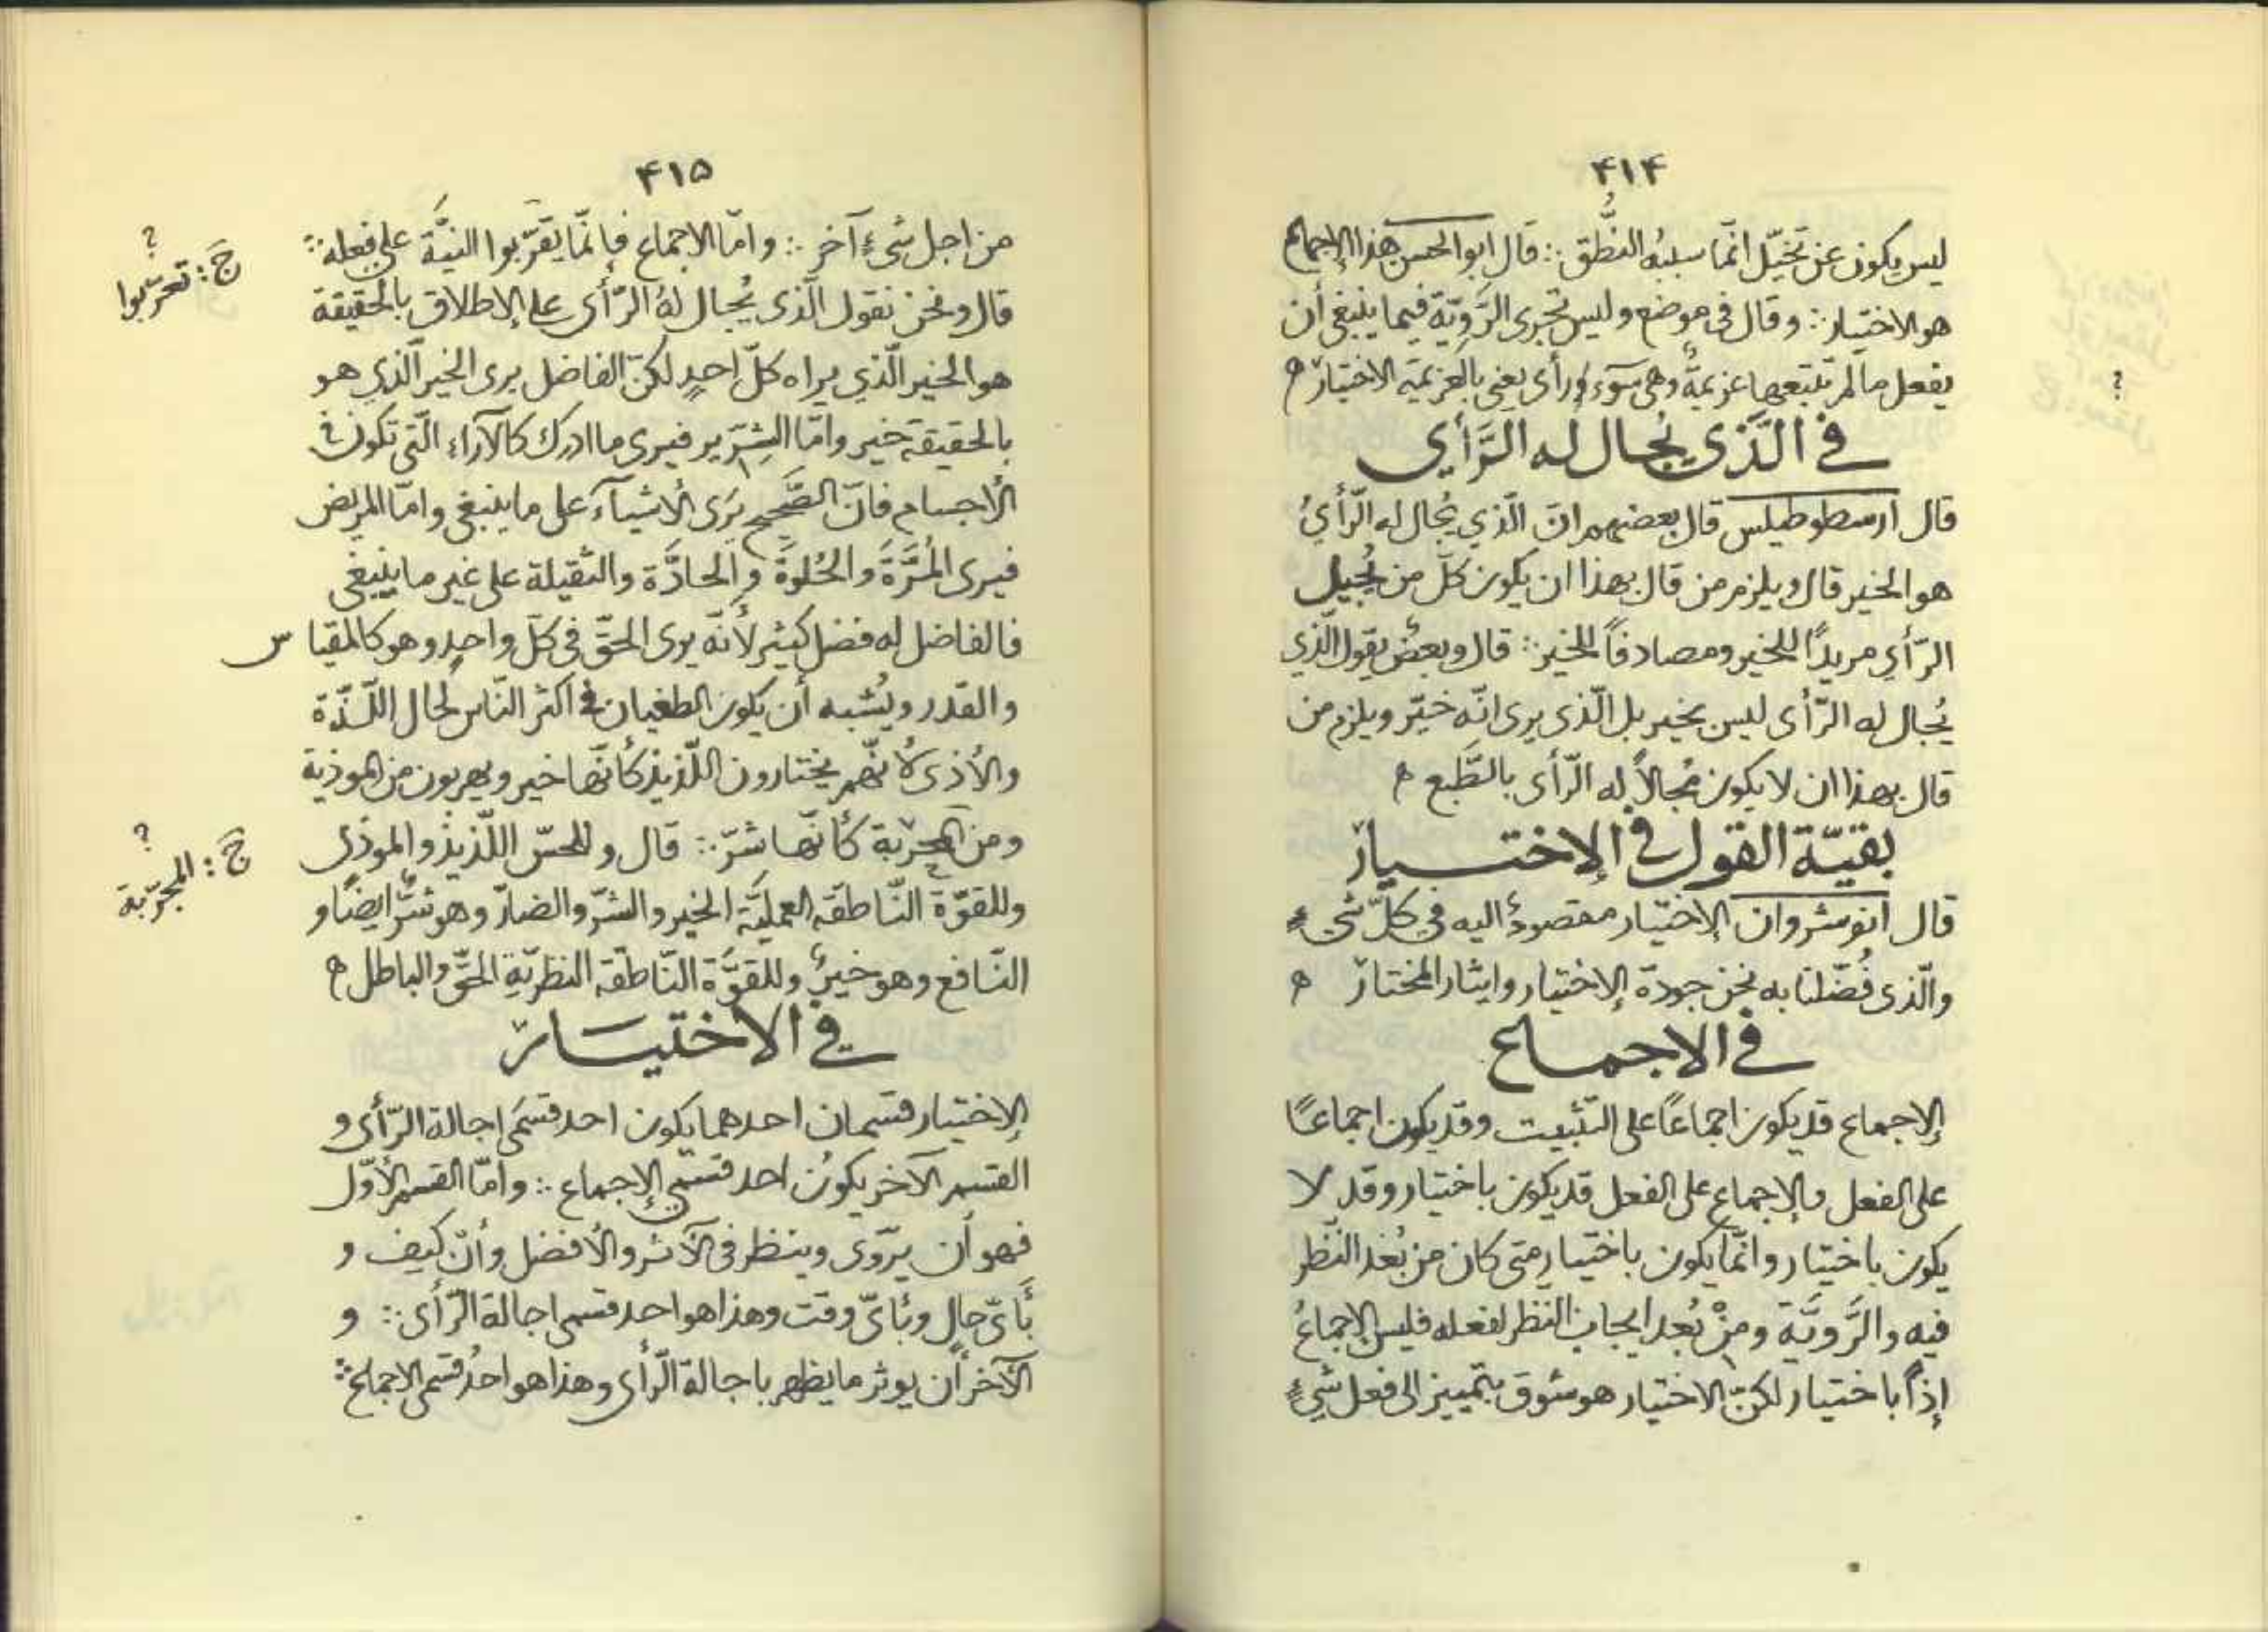 ۴۱۴
ليس يكون عن تخيّل انّما سببُه النُّطق ∴ قال ابو الحسن هذا الإجماع
هو الاختيار ∴ وقال فى موضع وليس تجرى الرَّوِيّة فيما ينبغى أن
يفعل ما لم تتبعها عزيمةٌ وهى رأى يعنى بالعزيمة الاختيار ه
؟
في الَّذى يُجال له الرَّأي
قال ارسطوطيلس قال بعضهم انّ الّذي يُجال له الرّأيُ
هو الخير قال ويلزم من قال بهذا ان يكون كلّ من يُجيل
الرّأي مريدًا للخير ومصادفاً للخير ∴ قال وبعضٌ يقول الّذي
يُجال له الرّأى ليس بخير بل الّذى يرى انّه خيّر ويلزم من
قال بهذا ان لا يكون مُجالاً له الرّأى بالطَّبع ه
بقيّة القول في الإختيار
قال انوشروان الإختيار مقصودٌ اليه في كلّ شىءٍ
والّذى فُضّلنا به نحن جودة الإختيار وايثار المختار ه
في الاجماع
الإجماع قد يكون اجماعًا على التّثبيت وقد يكون اجماعًا
على الفعل والإجماع على الفعل قد يكون باختيار وقد لا
يكون باختيار وانّما يكون باختيار متى كان من بُعْد النّظر
فيه والرَّويّة ومِنْ بُعد ايجاب النّظر لفعله فليس الإجماعُ
إذاً باختيار لكنّ الاختيار هو شوق بتمييز الى فعل شىءٍ
۴۱۵
من اجل شىءٍ آخر ∴ وامّا الاجماع فإنّما يقرّبوا النيَّة على فعله ∴
؟
حَ : تعرّبوا
قال ونحن نقول الّذى يُجال لهُ الرّأى على الإطلاق بالحقيقة
هو الخير الّذي يراه كلّ احدٍ لكنّ الفاضل يرى الخير الّذي هو
بالحقيقة خير وامّا الشِرّير فيرى ما ادرك كالآراء الّتى تكون فى
الأجسام فانّ الصَّحيح يَرى الأشيآءَ على ما ينبغى وامّا المريض
فيرى المُرَّةَ والحُلوةَ والحادَّة والثقيلة على غير ما ينبغى
فالفاضل له فضل كثير لأنّه يرى الحقّ فى كلّ واحدٍ وهو كالمقياس
والقدر ويُشبه أن يكون الطغيان فى اكثر النّاس لحال اللّذّة
والأذى لأنّهم يختارون اللّذيذ كأنّها خير ويهربون من الموذية
ومن المجرّبة كأنّها شرّ ∴ قال وللحسّ اللّذيذُ والموذى
؟
حَ : المجرّبة
وللقوّة النّاطقة العمليَّة الخير والشرّ والضارّ وهو شرٌّ ايضًا و
النّافع وهو خيرٌ وللقوَّة النّاطقة النظريّة الحقّ والباطل ه
في الاختيار
الإختيار قسمان احدهما يكون احد قسمَى اجالة الرّأى و
القسم الآخر يكونُ احد قسمي الإجماع ∴ وامّا القسم الأوّل
فهو أن يروّى وينظر فى الآثر والأفضل وأنّ كيف و
بأىّ حالٍ وبأىّ وقت وهذا هو احد قسمى اجالة الرّأى ∴ و
الآخر أن يوثر ما يظهر باجالة الرّأى وهذا هو احدُ قسمى الاجماع ∴